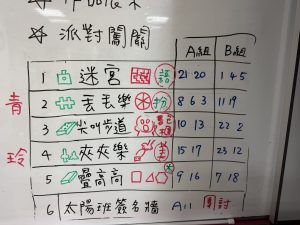 ☆ 派對闖關
A組 B組
1 迷宮 語 21 20 1 4 5
2 丟丟樂 扮 8 6 3 11 19
3 尖叫步道 10 13 22 2
4 夾夾樂 美 15 17 23 12
5 疊高高 9 16 7 18
6 太陽班簽名牆 All 團討
青
玲